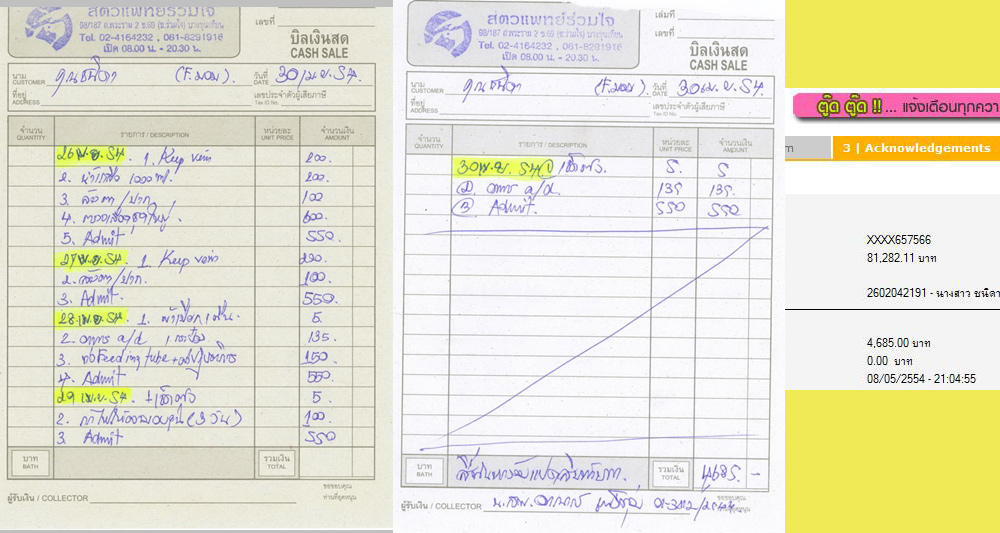 สัตวแพทย์ร่วมใจ
98/187 ถ.พระราม 2 ซ.69
Tel. 02-4164232 , 081-8291916
เปิด 08.00 น. - 20.30 น.
เลขที่
บิลเงินสด
CASH SALE
นาม
CUSTOMER
(F.มอม).
วันที่
DATE
30 เม.ย. 54.
ที่อยู่
ADDRESS
เลขประจำตัวผู้เสียภาษี
Tax ID No.
จำนวน
QUANTITY
รายการ / DESCRIPTION
หน่วยละ
UNIT PRICE
จำนวนเงิน
AMOUNT
26 เม.ย. 54. 1. Keep vein 200.
2. น้ำเกลือ 1000 ml. 200.
3. ล้างตา/ปาก. 100
4. 600.
5. Admit 550.
27 เม.ย. 54. 1. Keep vein
2. ล้างตา/ปาก. 100.
3. Admit. 550.
28 เม.ย. 54. 1. 5.
2. อาหาร a/d 1 กระป๋อง 135
3. Feeding tube 150
4. Admit 550.
29 เม.ย. 54. 5.
2. (3 วัน) 100.
3. Admit 550
บาท
BATH
รวมเงิน
TOTAL
ผู้รับเงิน / COLLECTOR
ขอขอบคุณ
ท่านที่อุดหนุน
สัตวแพทย์ร่วมใจ
98/187 ถ.พระราม 2 ซ.69
Tel. 02-4164232 , 081-8291916
เปิด 08.00 น. - 20.30 น.
เล่มที่
เลขที่
บิลเงินสด
CASH SALE
นาม
CUSTOMER
(F.มอม).
วันที่
DATE
30 เม.ย. 54.
ที่อยู่
ADDRESS
เลขประจำตัวผู้เสียภาษี
Tax ID No.
จำนวน
QUANTITY
รายการ / DESCRIPTION
หน่วยละ
UNIT PRICE
จำนวนเงิน
AMOUNT
30 เม.ย. 54 ① 5. 5
② อาหาร a/d. 135 135.
③ Admit. 550 550.
บาท
BATH
สี่พันหกร้อยแปดสิบห้าบาท.
รวมเงิน
TOTAL
4685. -
ผู้รับเงิน / COLLECTOR
ขอขอบคุณ
ท่านที่อุดหนุน
ตู๊ด ตู๊ด !! ... แจ้งเตือนทุกควา
3 | Acknowledgements
XXXX657566
81,282.11 บาท
2602042191 - นางสาว ชนิดา
4,685.00 บาท
0.00 บาท
08/05/2554 - 21:04:55